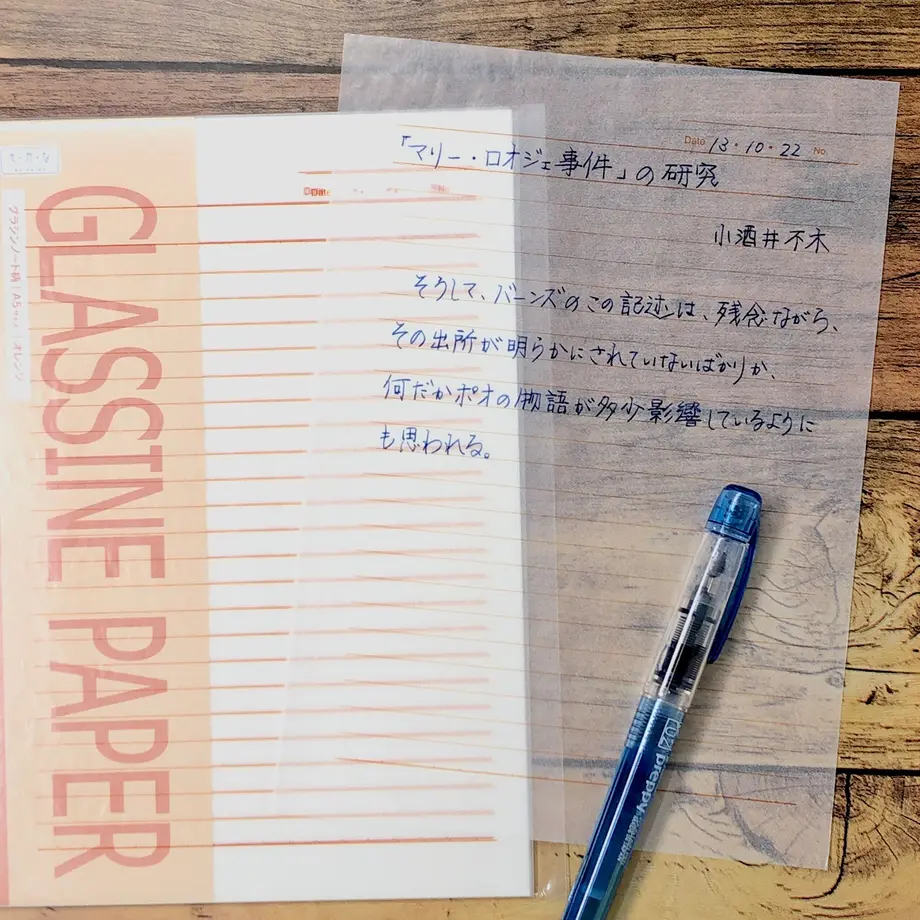 GLASSINE PAPER
グラシンノート柄 A5サイズ オレンジ
Date 13・10・22 No.
「マリー・ロオジェ事件」の研究
小酒井不木
そうして、バーンズのこの記述は、残念ながら、
その出所が明らかにされていないばかりか、
何だかポオの物語が多少影響しているように
も思われる。
preppy